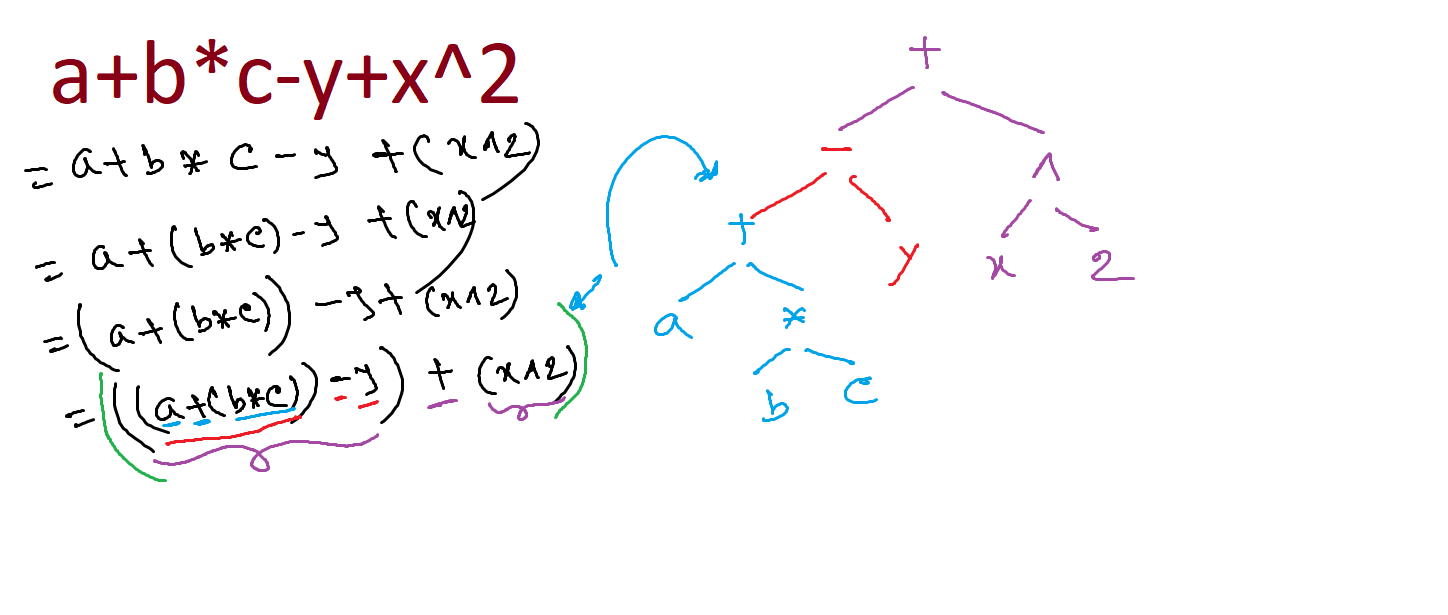 a+b*c-y+x^2
= a+b*c-y+(x^2)
= a+(b*c)-y+(x^2)
= (a+(b*c))-y+(x^2)
= (((a+(b*c))-y)+(x^2))
+
- ^
+ y x 2
a *
b c